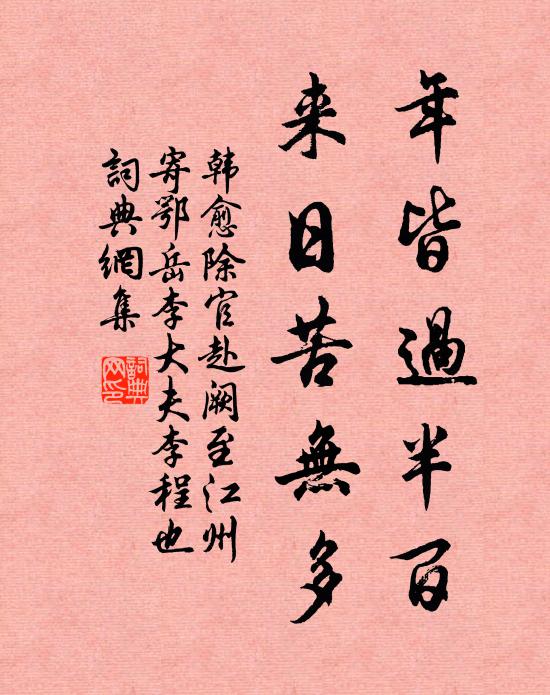 年皆過半百
来日苦無多
韩愈除官赴阙至江州
寄鄂岳李大夫李程也
詞典網集
詞典網印